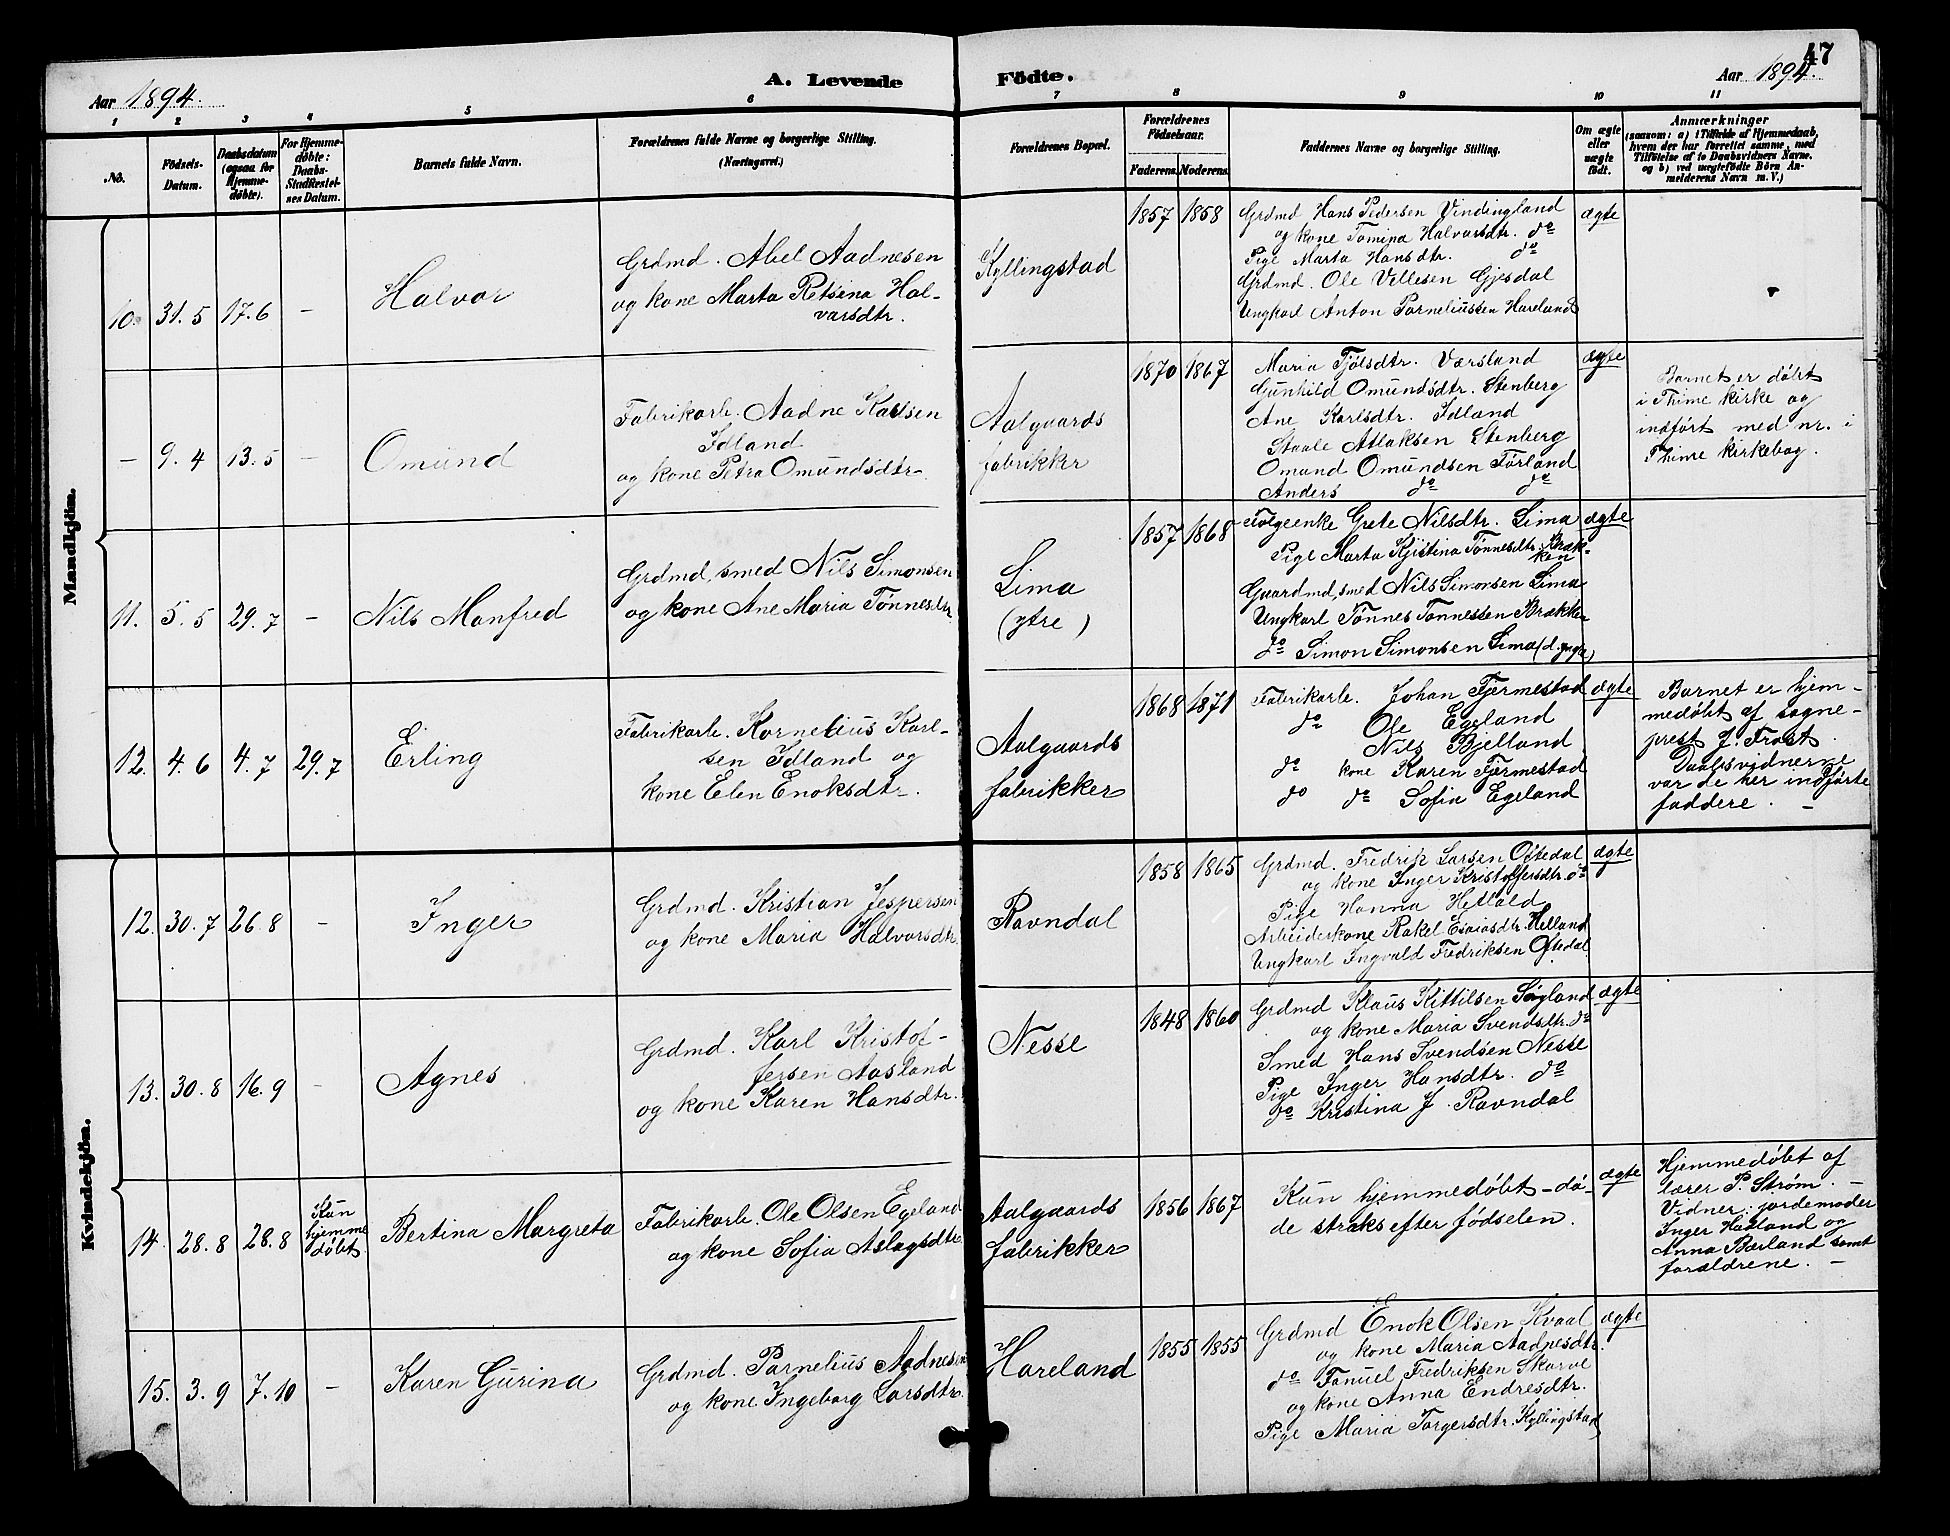 47
Aar 1894.
A. Levende Födte.
Aar 1894.
1 2 3 4 5 6 7 8 9 10 11
No.
Födsels-Datum.
Daabsdatum (ogsaa for Hjemmedøbte).
For Hjemmedøbte: Daabs-Stadfæstelses Datum.
Barnets fulde Navn.
Forældrenes fulde Navne og borgerlige Stilling. (Næringsvei.)
Forældrenes Bopæl.
Forældrenes Födselsaar.
Faderens. Moderens.
Faddernes Navne og borgerlige Stilling.
Om ægte eller uægte födt.
Anmærkninger
(saasom: a) i Tilfælde af Hjemmedaab, hvem der har forrettet samme, med Tilföielse af to Daabsvidners Navne, og b) ved uægtefödte Börn Anmelderens Navn m. V.)
Mandkjön.
10. 31.5 17.6 –
Halvor
Grdmd. Abel Aadnesen
og kone Marta Retsina Hal-
varsdtr.
Kyllingstad
1857 1858
Grdmd Hans Pedersen Vindingland
og kone Tomina Halvorsdtr. do
Pige Marta Hansdtr. do
Grdmd. Ole Villesen Gjesdal
Ungkarl Anton Parneliussen Hareland
ægte
– 9.4 13.5 –
Omund
Fabrikarb. Aadne Karlsen
Idland
og kone Petra Omundsdtr.
Aalgaards
fabrikker
1870 1867
Maria Tjølsdtr. Værsland
Gunhild Omundsdtr. Stenberg
Ane Karlsdtr. Idland
Staale Atlaksen Stenberg
Omund Omundsen Førland
Anders do do
ægte
Barnet er døbt
i Thime kirke og
indført med nr. i
Thime kirkebog.
11. 5.5 29.7 –
Nils Manfred
Grdmd, smed Nils Simonsen
og kone Ane Maria Tønnesdtr
Lima
(ytre)
1857 1868
Folgeenke Grete Nilsdtr. Lima
Pige Marta Kjistina Tønnesdtr. Bræk-
ken
Gaardmd, smed Nils Simonsen Lima
Ungkarl Tønnes Tønnessen Brækken
do Simon Simonsen Lima (d. yngre)
ægte
12. 4.6 4.7 29.7
Erling
Fabrikarb. Kornelius Karl-
sen Idland og
kone Elen Enoksdtr.
Aalgaards
fabrikker
1868 1871
Fabrikarb. Johan Fjermestad
do Ole Egeland
Nils Bjelland
do kone Karen Fjermestad
do do Sofia Egeland
ægte
Barnet er hjem-
medøbt af sogne-
prest J. Frost.
Daabsvidnerne
var de her indførte
faddere. –
Kvindekjön.
12. 30.7 26.8 –
Inger
Grdmd. Kristian Jespersen
og kone Maria Halvorsdtr.
Ravndal
1858 1865
Grdmd. Fredrik Larsen Oftedal
og kone Inger Kristoffersdtr. do
Pige Hanna Hetland
Arbeiderkone Rakel Esaiasdtr. Helland
Ungkarl Ingvald Fredriksen Oftedal.
ægte
13. 30.8 16.9 –
Agnes
Grdmd. Karl Kristof-
fersen Aasland
og kone Karen Hansdtr.
Nesse
1848 1860
Grdmd Klaus Kittilsen Søyland
og kone Maria Svendsdtr. do
Smed Hans Svendsen Nesse
Pige Inger Hansdtr. do
do Kristina J. Ravndal
ægte
14. 28.8 28.8
Kun
hjemme
døbt
Bertina Margreta
Fabrikarb. Ole Olsen Egeland
og kone Sofia Aslagsdtr.
Aalgaards
fabrikker
1856 1867
Kun hjemmedøbt – dø-
de straks efter fødselen.
ægte
Hjemmedøbt af
lærer P. Strøm. –
Vidner: jordemoder
Inger Haaland og
Anna Bærland samt
forældrene. –
15. 3.9 7.10 –
Karen Gurina
Grdmd. Parnelius Aadnesen
og kone Ingeborg Larsdtr.
Hareland
1855 1855
Grdmd Enok Olsen Kvaal
og kone Maria Aadnesdtr.
do Fanuel Fredriksen Skarve
og kone Anna Endresdtr.
Pige Maria Torgersdtr. Kyllingstad
ægte